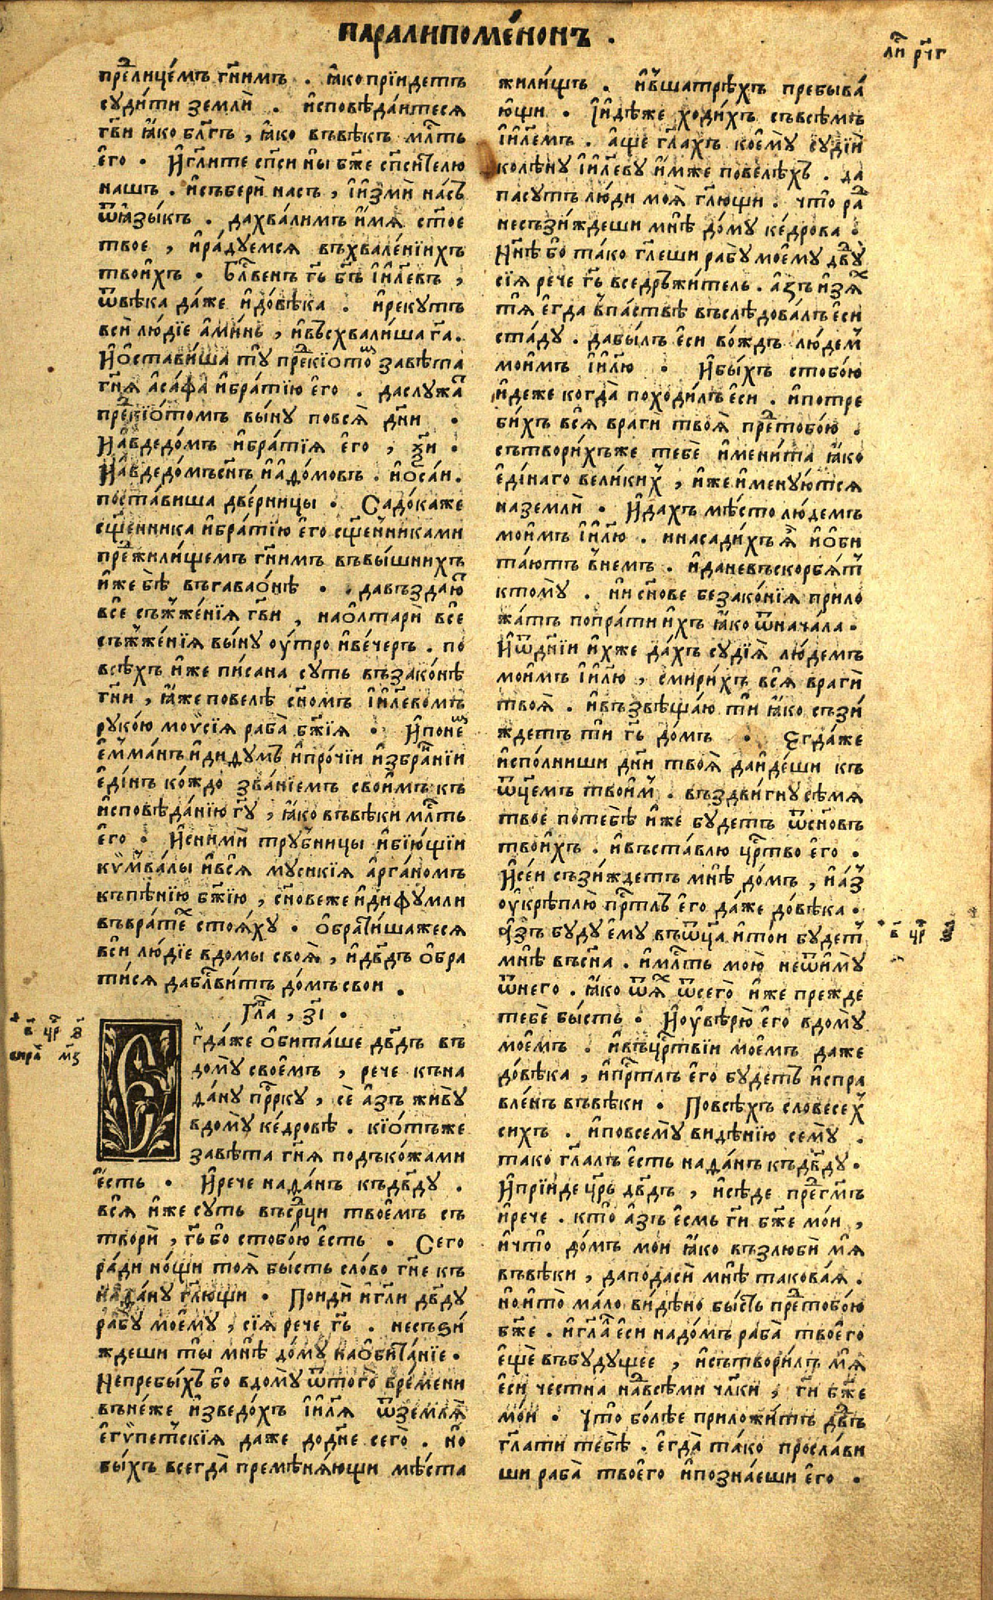 паралипоме́нонъ .
ли҃ рч҃г
пре҇лице́мъ гн҃имъ . ꙗ҆́ко прїидетъ
суди́ти землѝ . и҆сповѣ́даитеся
гв҃и ꙗ҆́ко бл҃гъ , ꙗ҆́ко въвѣ́къ мл҇ть
є҆го̀ . И҆ гл҃ите сп҃си ны̀ бж҃е сп҃си́телю
нашъ . и҆събери́ насъ , и҆ и҆зми̂ на́съ
ѿꙗ҆зы́къ . да хва́лимъ и҆́мя ст҃ое
твое , и҆ ра́дуемся въхвале́нїихъ
твои́хъ . Бл҇ве́нъ гь҃ бг҃ъ і҆и҃левъ ,
ѿвѣ́ка да́же и҆ до́вѣка . и҆ рекутъ
вси̂ лю́дїе а҆ми́нь , и҆ въсхвали́ша га҃ .
И҆ ѡ҆ста́виша тꙋ̀ пре҇кїо́томъ завѣ́та
гн҃я а҆са́фа и҆ бра́тїю є҆го̀ . да служа҇
пре҇кїо́томъ вы́ну по вся̀ дн҃и .
И҆ а҆вдедо́мъ и҆ бра́тїя є҆го̀ , ѯ҃и .
И҆ а҆вдедо́мъ сн҃ъ и҆ а҆до́мовъ . и҆ ѡ҆са́и .
поста́виша две́рницы . Садо́ка же
сщ҃е́нника и҆ бра́тїю є҆го̀ сщ҃е́нниками
пре҇жили́щемъ гн҃имъ въ вы́шнихъ
и҆́же бѣ̀ въгаваѡ́нѣ . да въздаю҇
все съжже́нїя гв҃и , на ѡ҆лтари̂ все̂
съжже́нїя вы́ну оу҆тро и҆ ве́черъ . по
всѣ́хъ и҆́же пи́сана суть въ зако́нѣ
гн҃и , ꙗ҆́же повелѣ̀ сн҃омъ і҆и҃левомъ
руко́ю моѵсїя раба̀ бж҃їя . И҆ по не҇
є҆мма́нъ и҆ диду́мъ и҆ про́чїи и҆збра́нїи
є҆ди́нъ ко́ждо зва́нїемъ свои́мъ къ
и҆сповѣ́данїю гу҃ , ꙗ҆́ко въвѣ́ки мл҇ть
є҆го̀ . И҆ сни́ми тру́бницы и҆ бїю́щїи
кѵмва́лы и҆ вся̂ муси́кїя а҆рга́номъ
къпѣ́нїю бж҃їю , сн҃ове же и҆дифу́мли
въвра́тѣхъ стоя́ху . ѡ҆брати́шажеся
вси̂ лю́дїе вдомы́ своя̂ , и҆ дв҃дъ ѡ҆бра
ти́ся да бл҇ви́тъ до́мъ сво́и .
Гла҇ , зі҃ .
в҃ цр҇ з҃
сира҇ мз҃
Є҆гда́же ѡ҆бита́ше дв҃дъ въ
дому̀ свое́мъ , рече къ на
ѳа́ну пр҇рку , се̂ а҆́зъ живу̀
вдому̀ ке́дровѣ . кїо́тъ же
завѣ́та гн҃я подъко́жами
є҆́сть . И҆ рече наѳа́нъ къ дв҃ду .
вся̂ и҆́же суть въ ср҇цы твое́мъ съ
твори̂ , гь҃ бо стобо́ю є҆́сть . Сего
ра́ди но́щи тоя̂ бы́сть сло́во гн҃е къ
наѳа́ну гл҃ющи . Поиди̂ и҆ гл҃и дв҃ду
рабу̀ моему , сїя рече гь҃ . не съзи́
ждеши ты̀ мнѣ̀ до́му на ѡ҆бита́нїе .
Не пребы́хъ бо вдому̀ ѿтого̀ вре́мени
въне́же и҆зведо́хъ і҆и҃ля ѿземля̂
є҆гѵпетскїя даже до дн҃е сего̀ . но̂
бы́хъ всегда̀ премѣня́ющи мѣ́ста
жили́щъ . и҆ вшатрѣ́хъ пребыва́
ю҆щи . И҆ и҆дѣ́же ходи́хъ съвсѣ́мъ
і҆и҃лемъ . а҆ще гл҃ахъ кое́му судїи̂
колѣ́ну і҆и҃леву и҆́мже повелѣ́хъ . да
пасу́тъ лю́ди моя̂ гл҃ющи . что̀ ра҇
не съзи́ждеши мнѣ̀ до́му ке́дрова .
Нн҃ѣ бо та́ко гл҃еши рабу̀ моему̀ дв҃ду
сїя̀ рече гь҃ вседръжи́тель . а҆зъ и҆зя҇
тя̀ є҆гда̀ впа́ствѣ въслѣ́довалъ є҆си
ста́ду . да бы́лъ є҆си во́ждь лю́демъ
мои́мъ і҆и҃лю . И҆ бы́хъ стобо́ю
и҆́деже когда̀ походи́лъ є҆си . и҆ потре
би́хъ вся̂ враги̂ твоя̂ пре҇тобо́ю .
сътвори́хъже тебѐ и҆мени́та ꙗ҆́ко
є҆ди́наго вели́ких , и҆́же и҆мену́ются
на земли̂ . И҆ да́хъ мѣ́сто лю́демъ
мои́мъ і҆и҃лю . и насади́хъ ꙗ҆̀ и҆ ѡ҆би
та́ютъ вне́мъ . и҆ да невъскорбя́т
ктому̀ . ни сн҃ове безако́нїя прило
жа́тъ попра́ти и҆́хъ ꙗ҆́ко ѿнача́ла .
И҆ ѿдн҃їи и҆́хже да́хъ судїя̂ лю́демъ
мои́мъ і҆и҃лю , смири́хъ вся̂ враги̂
твоя̂ . и҆ възвѣща́ю ти̂ ꙗ҆́ко съзи́
ждетъ ти̂ гь҃ до́мъ . Є҆гда́же
и҆спо́лниши дн҃и твоя̂ да и҆́деши къ
ѿц҃емъ твои́м . въздви́гну сѣ́мя
твое̂ потебѣ̀ и҆́же бу́детъ ѿсновъ
твои́хъ . и҆ въста́влю цр҇тво є҆го̀ .
И҆ се́и съзи́ждетъ мнѣ̀ до́мъ , и҆ а҆́з
оу҆крѣплю̀ пр҇тлъ є҆го̀ да́же до́вѣка .
А҆́зъ бу́ду є҆му въ ѿц҃а и҆ то́и бу́дет
в҃ цр҇ з҃
мнѣ̀ въ сн҃а . и҆ мл҇ть мою̀ не ѿи҆му̀
ѿнего̀ . ꙗ҆́ко ѿя҇ ѿсего̀ и҆́же прежде
тебѐ бы́сть . И҆ оу҆вѣ́рю є҆го̀ вдому̀
мое́мъ . и҆ въ цр҇твїи мое́мъ даже
до́вѣка , и҆ пр҇тлъ є҆го̀ бу́детъ и҆спра
вле́нъ въвѣ́ки . По всѣ́хъ словесе́х
си́хъ . и҆ по всему̀ видѣ́нїю сему̀ .
тако гл҃алъ є҆́сть наѳа́нъ къ дв҃ду .
И҆ прїиде цр҃ь дв҃дъ , и҆ сѣ́де пре҇гм҃ъ
и҆ рече . кто̀ а҆́зъ є҆смь ги҃ бж҃е мо́и ,
и҆ что̀ до́мъ мо́и ꙗ҆́ко възлюби̂ мя̀
въвѣ́ки , да пода́си мнѣ̀ такова́я .
но и҆ то̀ ма́ло ви́дѣно бы́сть пре҇тобо́ю
бж҃е . и҆ гл҃а є҆си на до́мъ раба̀ твоего
є҆щѐ въбу́дущее , и҆ сътвори́лъ мя̀
є҆си че́стна на҇всѣ́ми чл҃ки , ги҃ бж҃е
мо́и . Что̀ бо́лѣе приложи́тъ дв҃дъ
гл҃ати тебѣ̀ . є҆гда̀ та́ко просла́ви
ши раба̀ твоего и҆ позна́еши є҆го̀ .